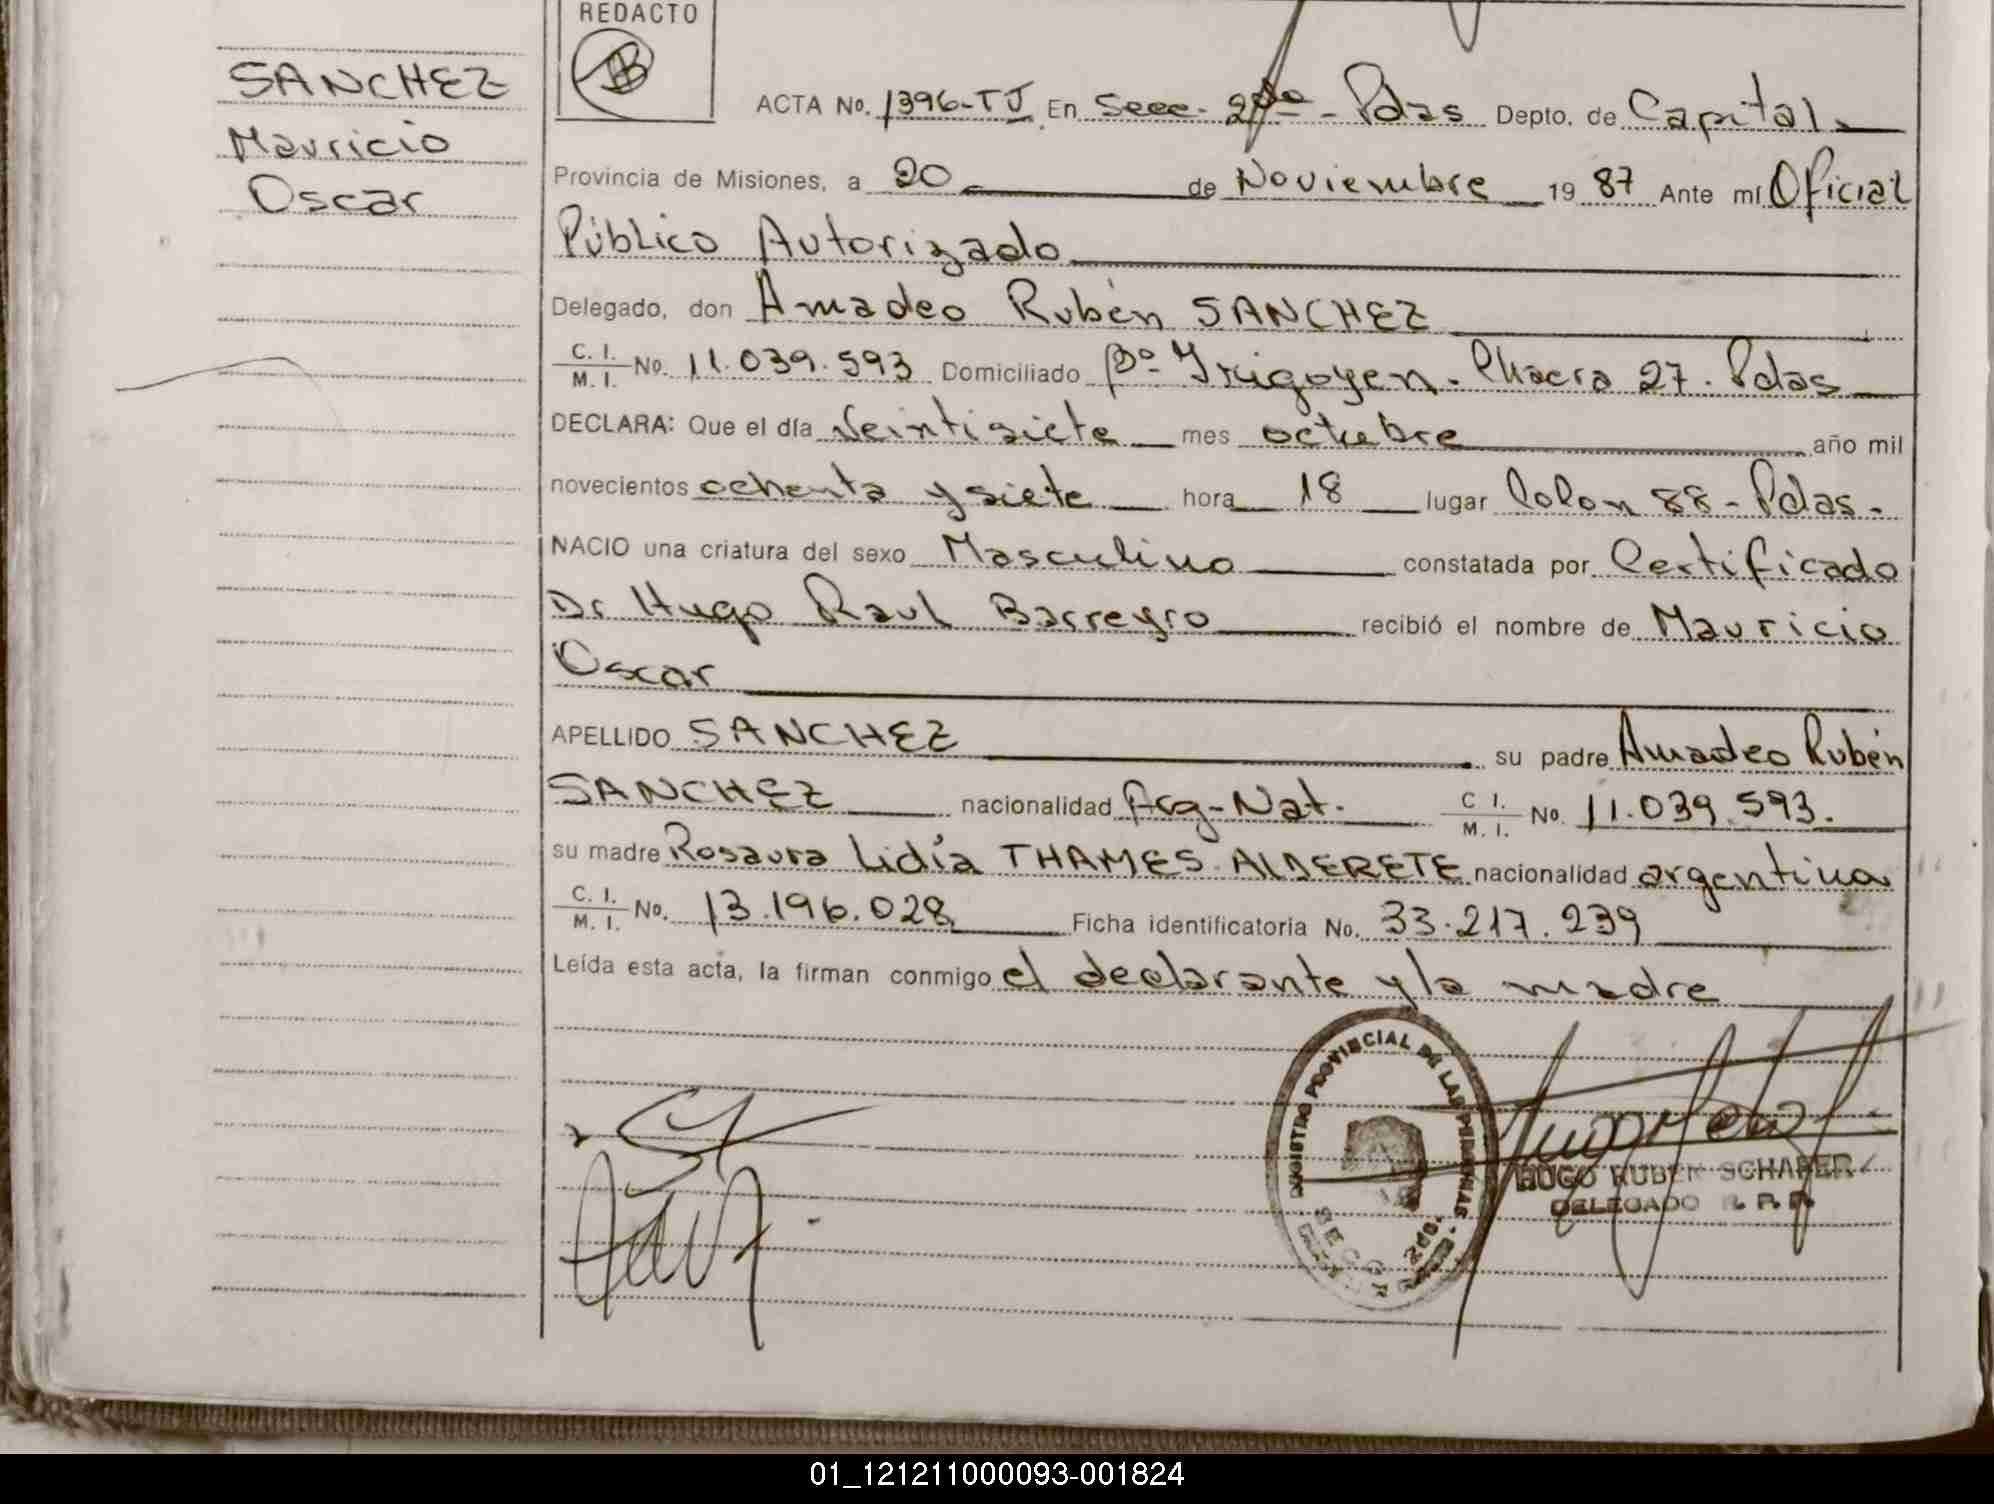 REDACTO
SANCHEZ
Mauricio
Oscar
ACTA No. 1396-TJ En Secc. 2da - Pdas Depto. de Capital
Provincia de Misiones, a 20 de Noviembre 1987 Ante mí Oficial
Público Autorizado
Delegado, don Amadeo Rubén SANCHEZ
C. I. / M. I. No. 11.039.593 Domiciliado Bº Yrigoyen. Chacra 27. Pdas
DECLARA: Que el día Veintisiete mes octubre año mil
novecientos ochenta y siete hora 18 lugar Colon 88 - Pdas.
NACIO una criatura del sexo Masculino constatada por Certificado
Dr Hugo Raul Barreyro recibió el nombre de Mauricio
Oscar
APELLIDO SANCHEZ su padre Amadeo Rubén
SANCHEZ nacionalidad Arg-Nat. C I. / M. I. No. 11.039.593.
su madre Rosaura Lidía THAMES ALDERETE nacionalidad argentina
C. I. / M. I. No. 13.196.028 Ficha identificatoria No. 33.217.239
Leída esta acta, la firman conmigo el declarante y la madre
REGISTRO PROVINCIAL DE LAS PERSONAS
HUGO RUBEN SCHAFER
DELEGADO R. P. P.
01_121211000093-001824